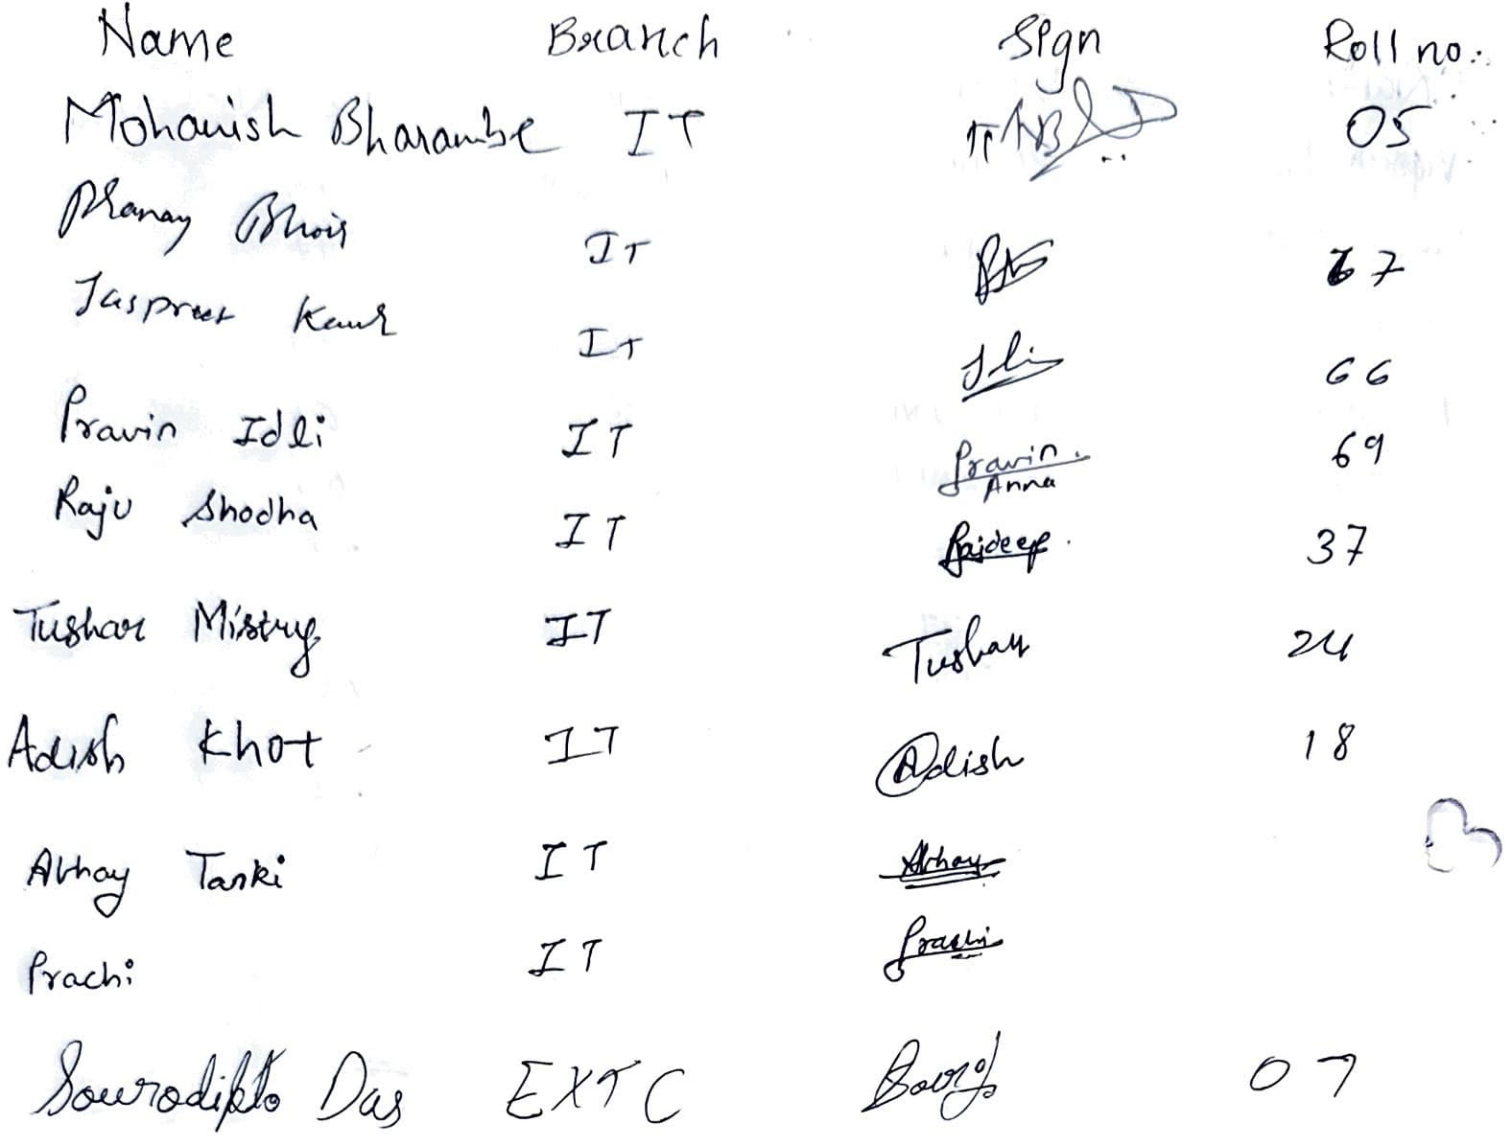 Name Branch Sign Roll no.
Mohanish Bharambe IT 05
Pranay Bhoir IT 67
Jaspreet Kaur IT 66
Pravin Idli IT Pravin. Anna 69
Raju Shodha IT Rajdeep. 37
Tushar Mistry IT Tushar 24
Adish Khot IT Adish 18
Abhay Tanki IT Abhay
Prachi IT Prachi
Sourodipto Das EXTC 07